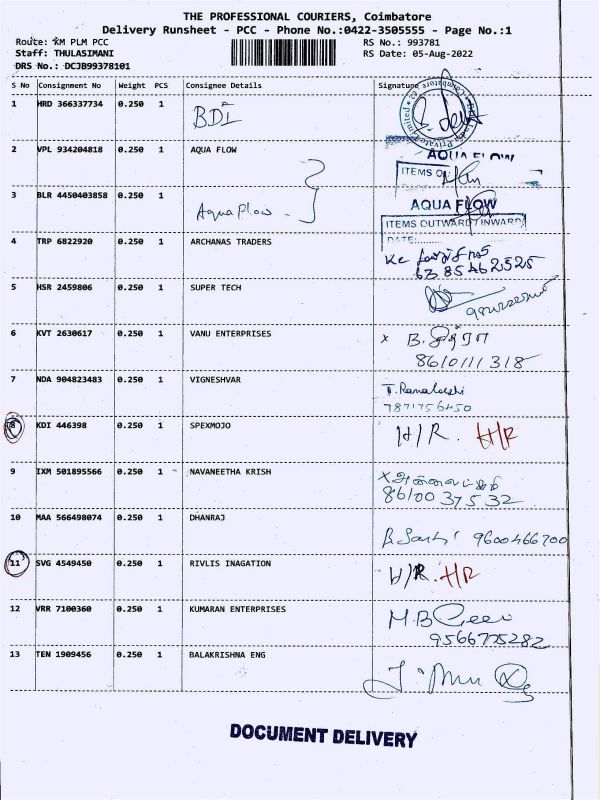 THE PROFESSIONAL COURIERS, Coimbatore
Delivery Runsheet - PCC - Phone No.:0422-3505555 - Page No.:1
Route: KM PLM PCC RS No.: 993781
Staff: THULASIMANI RS Date: 05-Aug-2022
DRS No.: DCJB99378101
S No Consignment No Weight PCS Consignee Details Signature
1 HRD 366337734 0.250 1 BDI
2 VPL 934204818 0.250 1 AQUA FLOW AQUA FLOW
ITEMS
3 BLR 4450403858 0.250 1 Aquaflow AQUA FLOW
ITEMS OUTWARD / INWARD
DATE:
4 TRP 6822920 0.250 1 ARCHANAS TRADERS
63 85462525
5 HSR 2459806 0.250 1 SUPER TECH
6 KVT 2630617 0.250 1 VANU ENTERPRISES x B. சித்ரா
8610111318
7 NDA 904823483 0.250 1 VIGNESHVAR
7871756450
8 KDI 446398 0.250 1 SPEXMOJO H/R. H/R
9 IXM 501895566 0.250 1 NAVANEETHA KRISH
86100 37532
10 MAA 566498074 0.250 1 DHANRAJ 9600466700
11 SVG 4549450 0.250 1 RIVLIS INAGATION H/R. H/R
12 VRR 7100360 0.250 1 KUMARAN ENTERPRISES
9566775282
13 TEN 1909456 0.250 1 BALAKRISHNA ENG
DOCUMENT DELIVERY